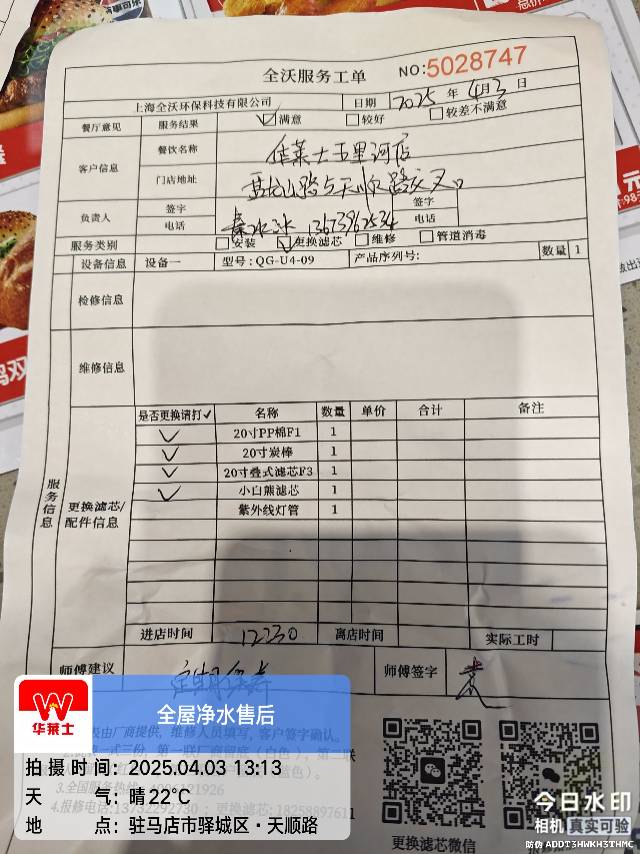 全沃服务工单 NO:5028747
上海全沃环保科技有限公司 日期 2025年4月3日
餐厅意见 服务结果 满意 较好 较差不满意
客户信息 餐饮名称 华莱士五里河店
门店地址
负责人 签字 签字
电话 电话
服务类别 安装 更换滤芯 维修 管道消毒
设备信息 设备一 型号:QG-U4-09 产品序列号: 数量 1
检修信息
维修信息
服务信息
更换滤芯/配件信息
是否更换请打✓ 名称 数量 单价 合计 备注
✓ 20寸PP棉F1 1
✓ 20寸炭棒 1
✓ 20寸叠式滤芯F3 1
✓ 小白熊滤芯 1
紫外线灯管 1
进店时间 12230 离店时间 实际工时
师傅建议 师傅签字
由厂商提供,维修人员填写,客户签字确认。
一式三份,第一联厂商留底(白色),第二联
更换滤芯微信
华莱士
全屋净水售后
拍摄时间:2025.04.03 13:13
天气:晴22°C
地点:驻马店市驿城区·天顺路
今日水印
相机 真实可验
防伪 ADDT3HWKH3THMC